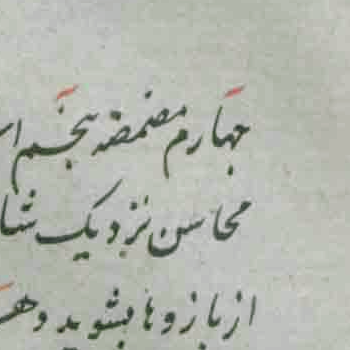 چهارم مضمضه پنجم
محاسن نزدیک
از بازوها بشوید و